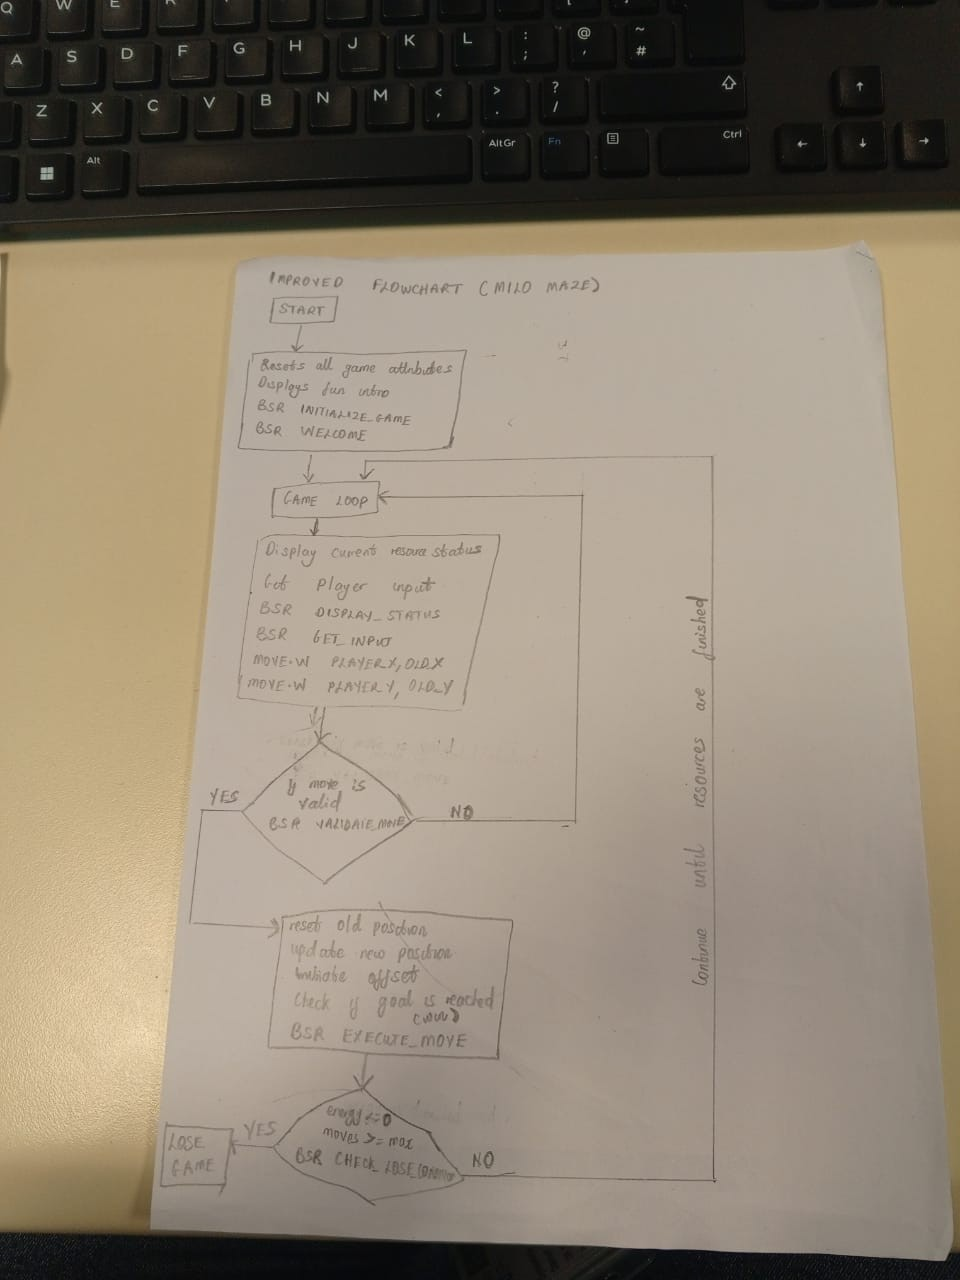 Q W E R
A S D F G H J K L : ; @ ' ~ #
Z X C V B N M < , > . ? /
Alt AltGr Fn Ctrl
IMPROVED FLOWCHART (MILO MAZE)
START
Resets all game attributes
Displays fun intro
BSR INITIALIZE_GAME
BSR WELCOME
GAME LOOP
Display current resource status
Get Player input
BSR DISPLAY_STATUS
BSR GET_INPUT
MOVE.W PLAYER_X, OLD_X
MOVE.W PLAYER_Y, OLD_Y
if move is
valid
BSR VALIDATE_MOVE
YES
NO
reset old position
update new position
initiate offset
Check if goal is reached
BSR EXECUTE_MOVE
energy <= 0
moves >= max
BSR CHECK_LOSE_CONDITION
YES
NO
LOSE
GAME
Continue until resources are finished